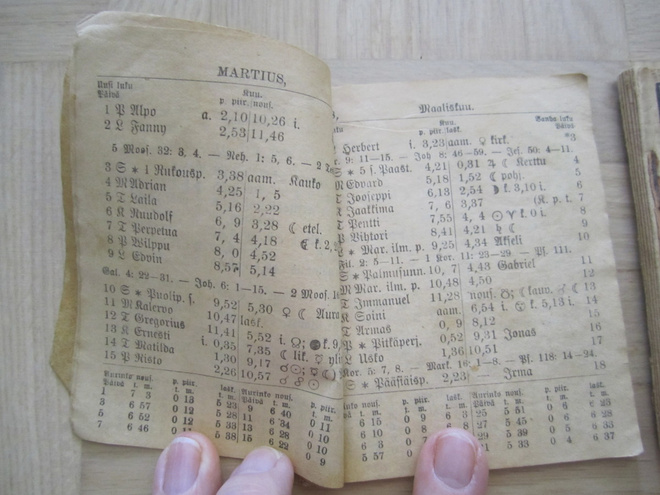 MARTIUS,
Uusi luku
Päivä
Kuu.
p. piir. nouf.
1 P Alpo a. 2,10 10,26 i.
2 L Fanny 2,53 11,46
5 Moos. 32: 3, 4. — Neh. 1: 5, 6. — 2
3 S * 1 Rukousp. 3,38 aam. Kauko
4 M Adrian 4,25 1, 5
5 T Laila 5,16 2,22
6 K Ruudolf 6, 9 3,28 ☾ etel.
7 T Perpetua 7, 4 4,18 ☾ f. 2,
8 P Wilppu 8, 0 4,52
9 L Edvin 8,57 5,14
Gal. 4: 22—31. — Joh. 6: 1—15. — 2 Moos. 1
10 S * Puolip. s. 9,52 5,30 ♀ ☾ Aura
11 M Kalervo 10,47 lask.
12 T Gregorius 11,41 5,52 i.
13 K Ernesti i. 0,35 7,35 ☾
14 T Matilda 1,30 9,17
15 P Risto 2,26 10,57
Aurinko nouf. p. piir. lask. Aurinko nouf. p. piir. lask.
Päivä t. m. t. m. Päivä t. m. t. m.
1 7 3 0 13 5 23 9 6 40 0 11
3 6 57 0 12 5 28 11 6 34 0 10
5 6 52 0 12 5 33 13 6 28 0 10
7 6 46 5 38 15 6 22 0 9
Maaliskuu.
Kuu.
p. piir. lask.
Wanha luku
Päivä
Herbert i. 3,23 aam. ♀ kirk. 3
r. 9: 11—15. — Joh 8: 46—59. — Jes. 50: 4—11.
* 5 s. Paast. 4,21 0,31 ♃ ☾ Kerttu 4
Edvard 5,18 1,52 ☾ pohj. 5
T Jooseppi 6,13 2,54 ☽ k. 3,10 i. 6
Jaakkima 7, 6 3,37 (K. p. t. 7
T Pentti 7,55 4, 4 ☉ ♈ k. 0 i. 8
P Vihtori 8,41 4,21 ♄ ☾ 9
* Mar. ilm. p. 9,25 4,34 Akseli 10
Fil. 2: 5—11. — 1 Kor. 11: 23—29. — Ps. 111.
S * Palmusunn. 10, 7 4,43 Gabriel 11
M Mar. ilm. p. 10,48 4,50 12
T Immanuel 11,28 nouf. 13
K Soini aam. 6,54 i. f. 5,13 i. 14
T Armas 0, 9 8,12 15
P * Pitkäperj. 0,52 9,31 Jonas 16
L Usko 1,36 10,51 17
Kor. 5: 7, 8. — Mark. 16: 1—8. — Ps. 118: 14—24.
S * Pääsiäisp. 2,23 Irma 18
nouf. p. piir. lask. Aurinko nouf. p. piir. lask.
t. m. t. m. Päivä t. m. t. m.
6 15 0 9 25 5 51 0 6 6 23
6 10 0 8 27 5 45 0 6 6 28
6 3 0 8 29 5 39 0 5 6 33
5 57 31 5 33 0 4 6 37